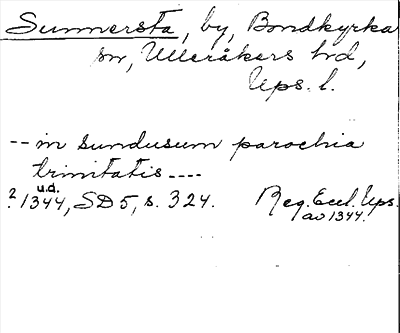 Sunnersta, by, Bondkyrka
sn, Ulleråkers hd,
Ups. l.
-- in sundusum parochia
trinitatis ----
u.d.
? 1344, SD 5, s. 324. Reg. Eccl. Ups.
av 1344.